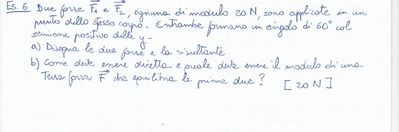 Es. 6 Due forze F₁ e F₂, ognuna di modulo 20 N, sono applicate in un
punto dello stesso corpo. Entrambe formano un angolo di 60° col
semiasse positivo delle y.
a) Disegna le due forze e la risultante
b) Come deve essere diretta e quale deve essere il modulo di una
Terza forza F che equilibra le prime due? [20 N]